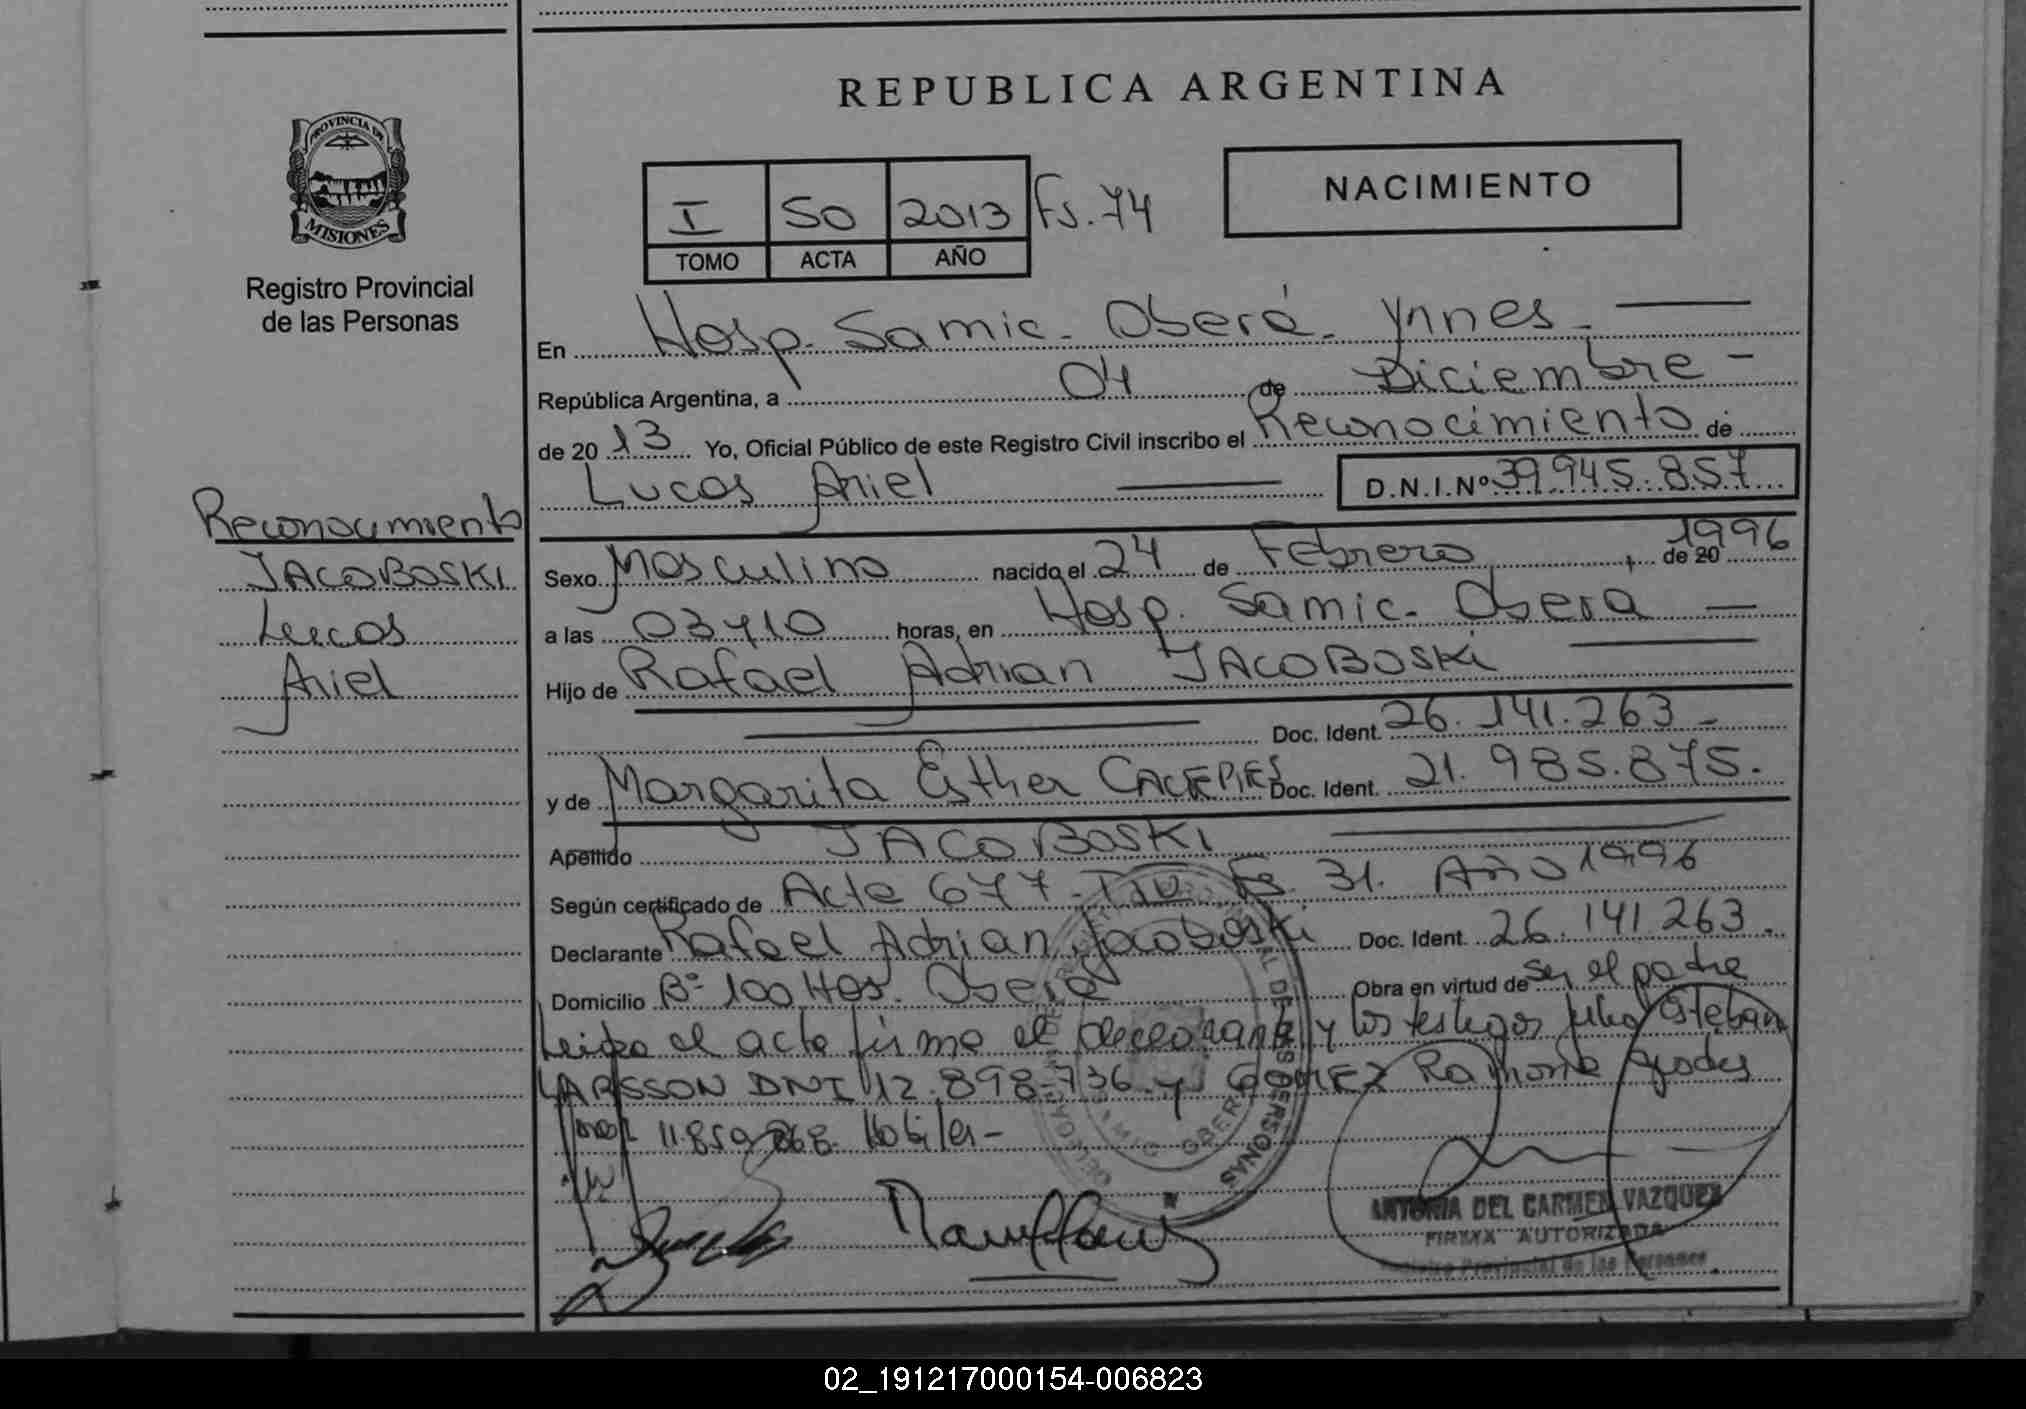 REPUBLICA ARGENTINA
PROVINCIA DE
MISIONES
Registro Provincial
de las Personas
I 50 2013 Fs. 74
TOMO ACTA AÑO
NACIMIENTO
En Hosp. Samic - Oberá -
República Argentina, a 04 de Diciembre -
de 20 13 Yo, Oficial Público de este Registro Civil inscribo el Reconocimiento de
Lucas Ariel D.N.I.Nº 39.945.857
Reconocimiento
JACOBOSKI
Lucas
Ariel
Sexo Masculino nacido el 24 de Febrero de 20 1996
a las 03 y 10 horas, en Hosp. Samic - Obera
Hijo de Rafael Adrian JACOBOSKI
Doc. Ident. 26.141.263 -
y de Margarita Esther Doc. Ident. 21.985.875.
Apellido JACOBOSKI
Según certificado de Acta 677 - Fs. 31. Año 1996
Declarante Rafael Adrian Jacoboski Doc. Ident. 26.141.263.
Domicilio Bº 100 Has. Oberá Obra en virtud de ser el padre
Leida el acta firma el declarante y los testigos Julio Esteban
LARSSON DNI 12.898.736 y GOMEZ Ramona
11.859.868. Habiles -
ANTONIA DEL CARMEN VAZQUEZ
FIRMA AUTORIZADA
Registro Provincial de las Personas
02_191217000154-006823